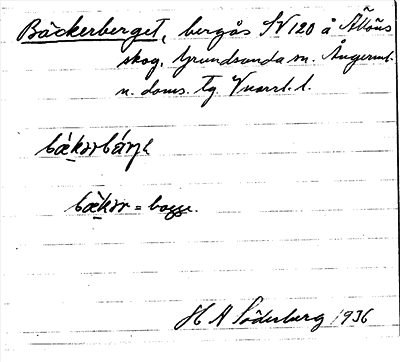 Bäckerberget, bergås SV 120 å Ållöns
skog, Grundsunda sn. Ångerml.
n. doms. Tg. Kvarrl. l.
bækərbærjə
bækər = bagge.
H A Söderberg 1936